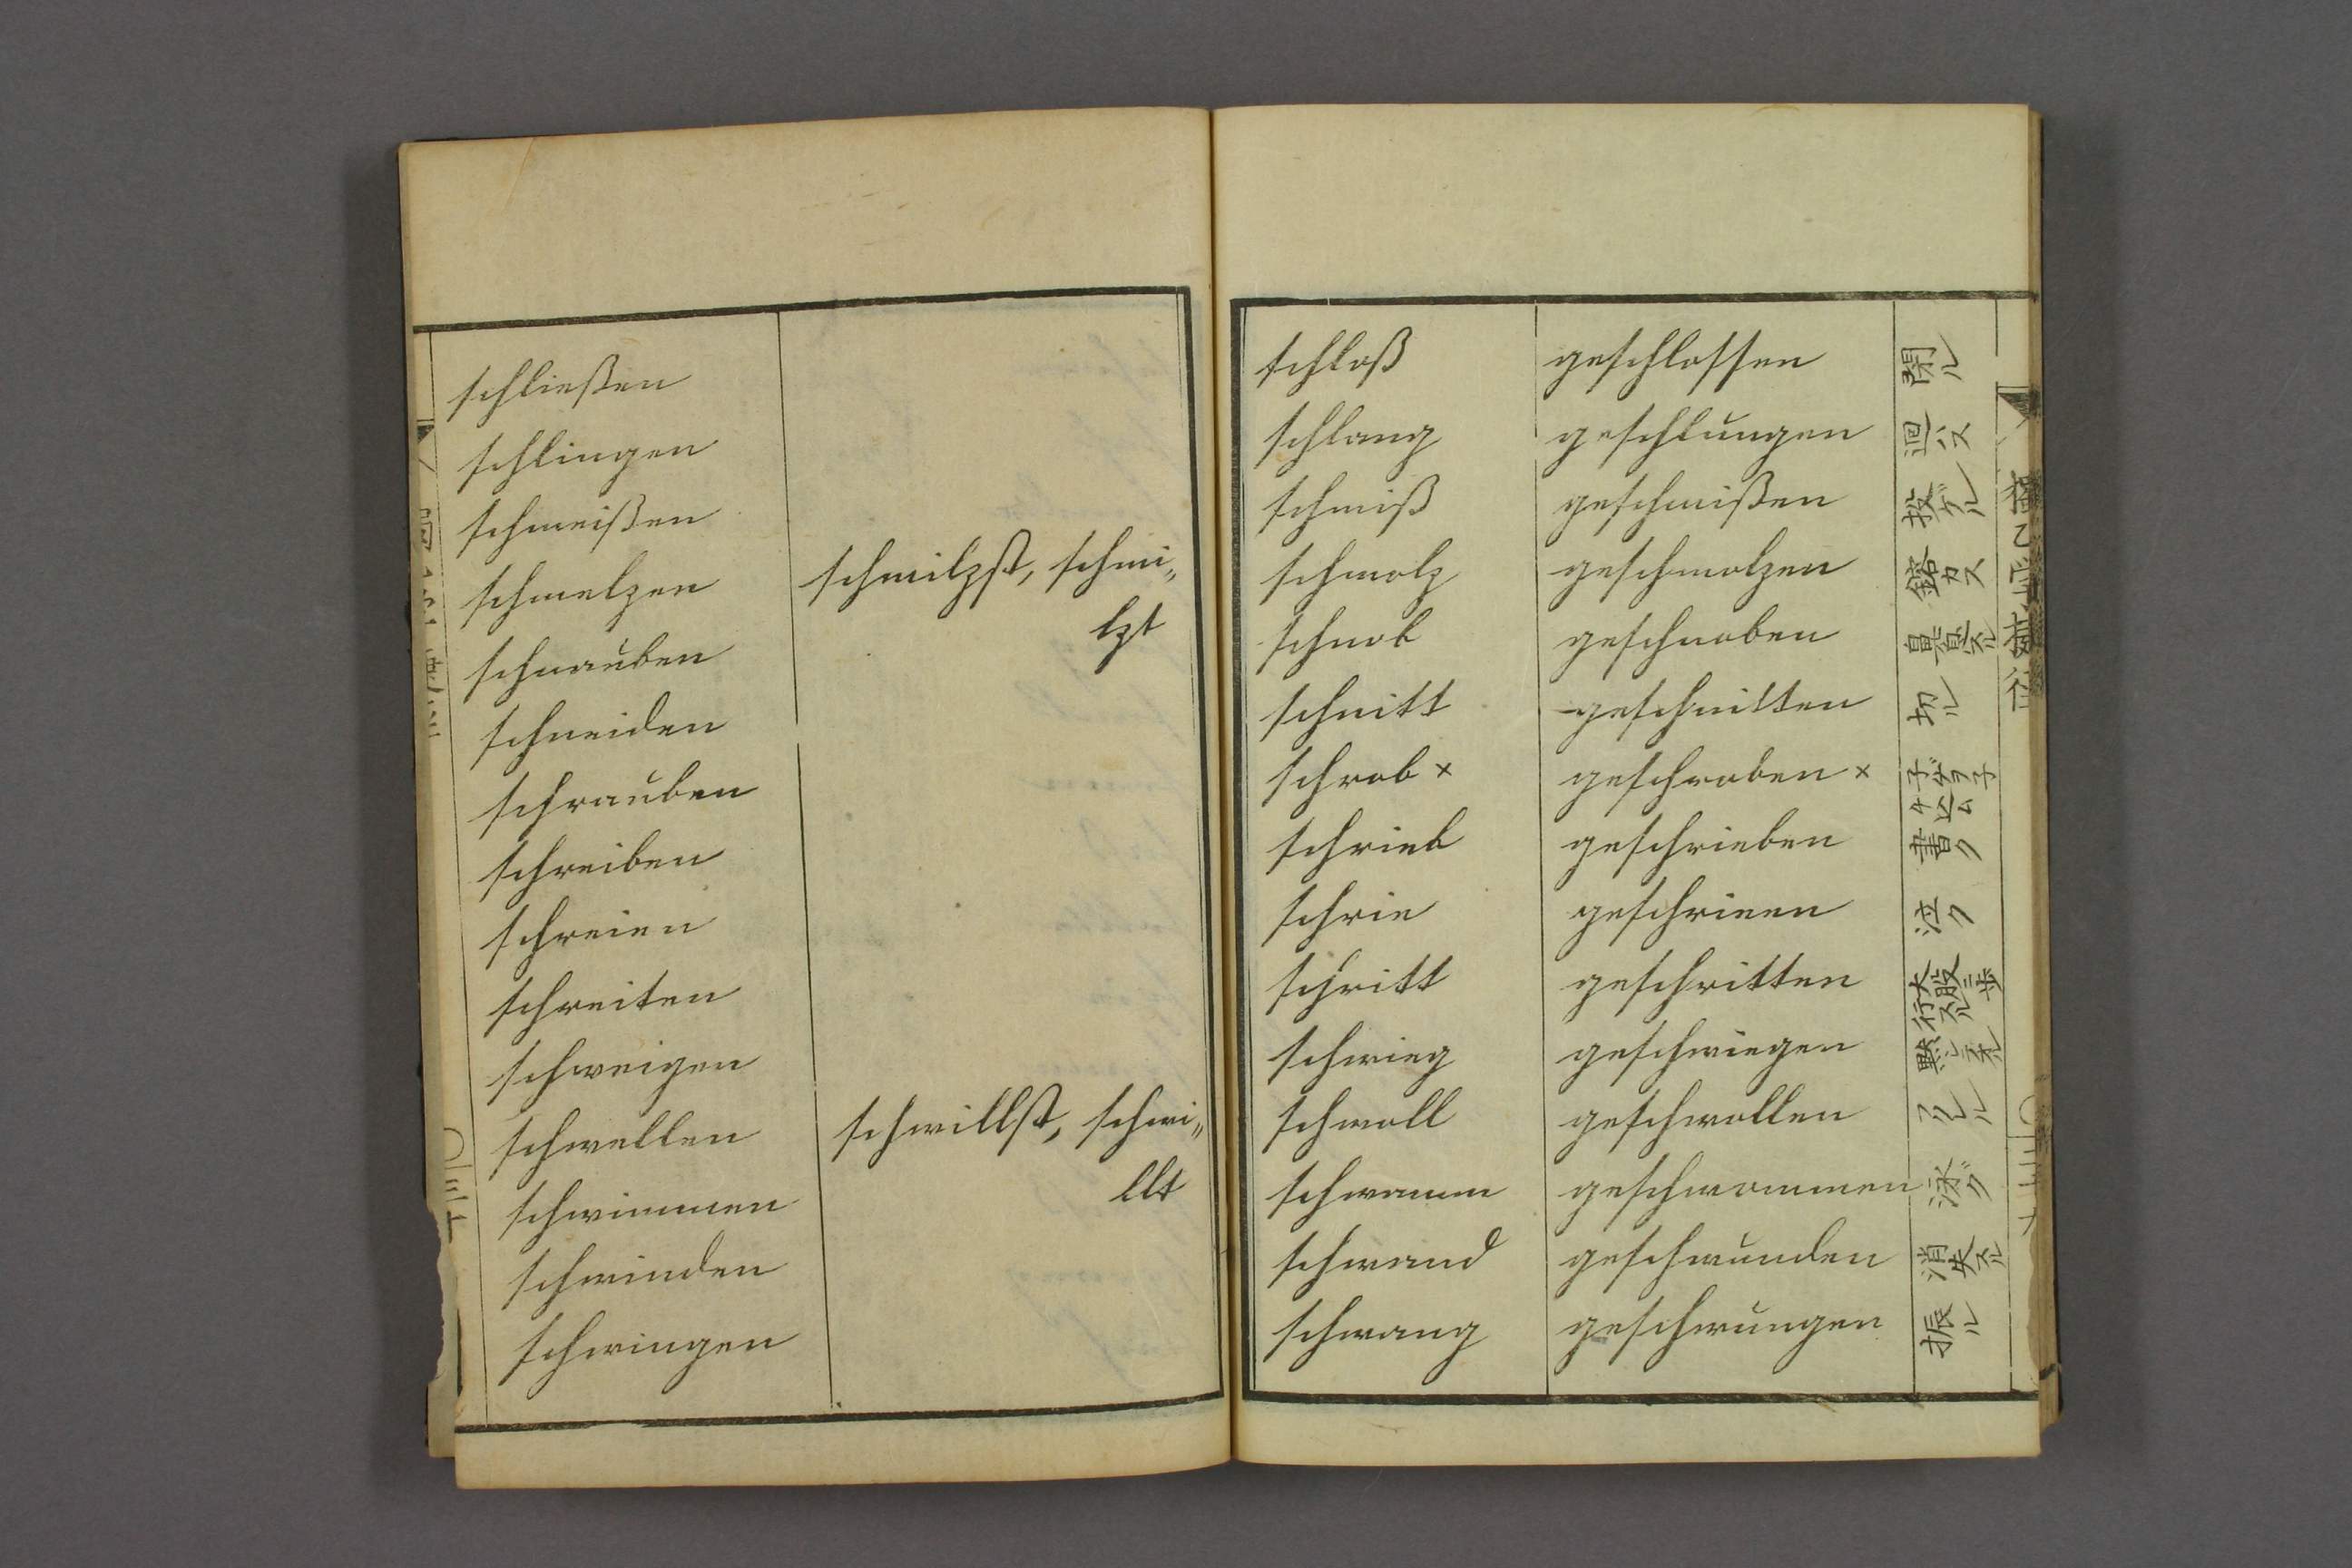 schließen schloß geschlossen 閉ル
schlingen schlang geschlungen 廻ハス
schmeißen schmiß geschmißen 投ゲル
schmelzen schmilzst, schmi„ schmolz geschmolzen 鎔カス
lzt
schnauben schnob geschnoben 鼻息スル
schneiden schnitt geschnitten 切ル
schrauben schrob × geschroben ×
schreiben schrieb geschrieben 書ク
schreien schrie geschrieen 泣ク
schreiten schritt geschritten
schweigen schwieg geschwiegen
schwellen schwillst, schwi„ schwoll geschwollen
llt
schwimmen schwamm geschwommen 泳グ
schwinden schwand geschwunden 消失スル
schwingen schwang geschwungen 振ル